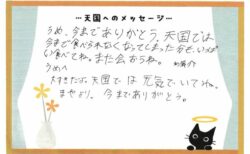 … 天国へのメッセージ …
うめ、今までありがとう。天国では
今まで食べられなくなってしまった分を、いっぱ
い食べてね。また会おうね。
うめへ
大すきだよ。天国では元気でいてね。
今までありがとう。